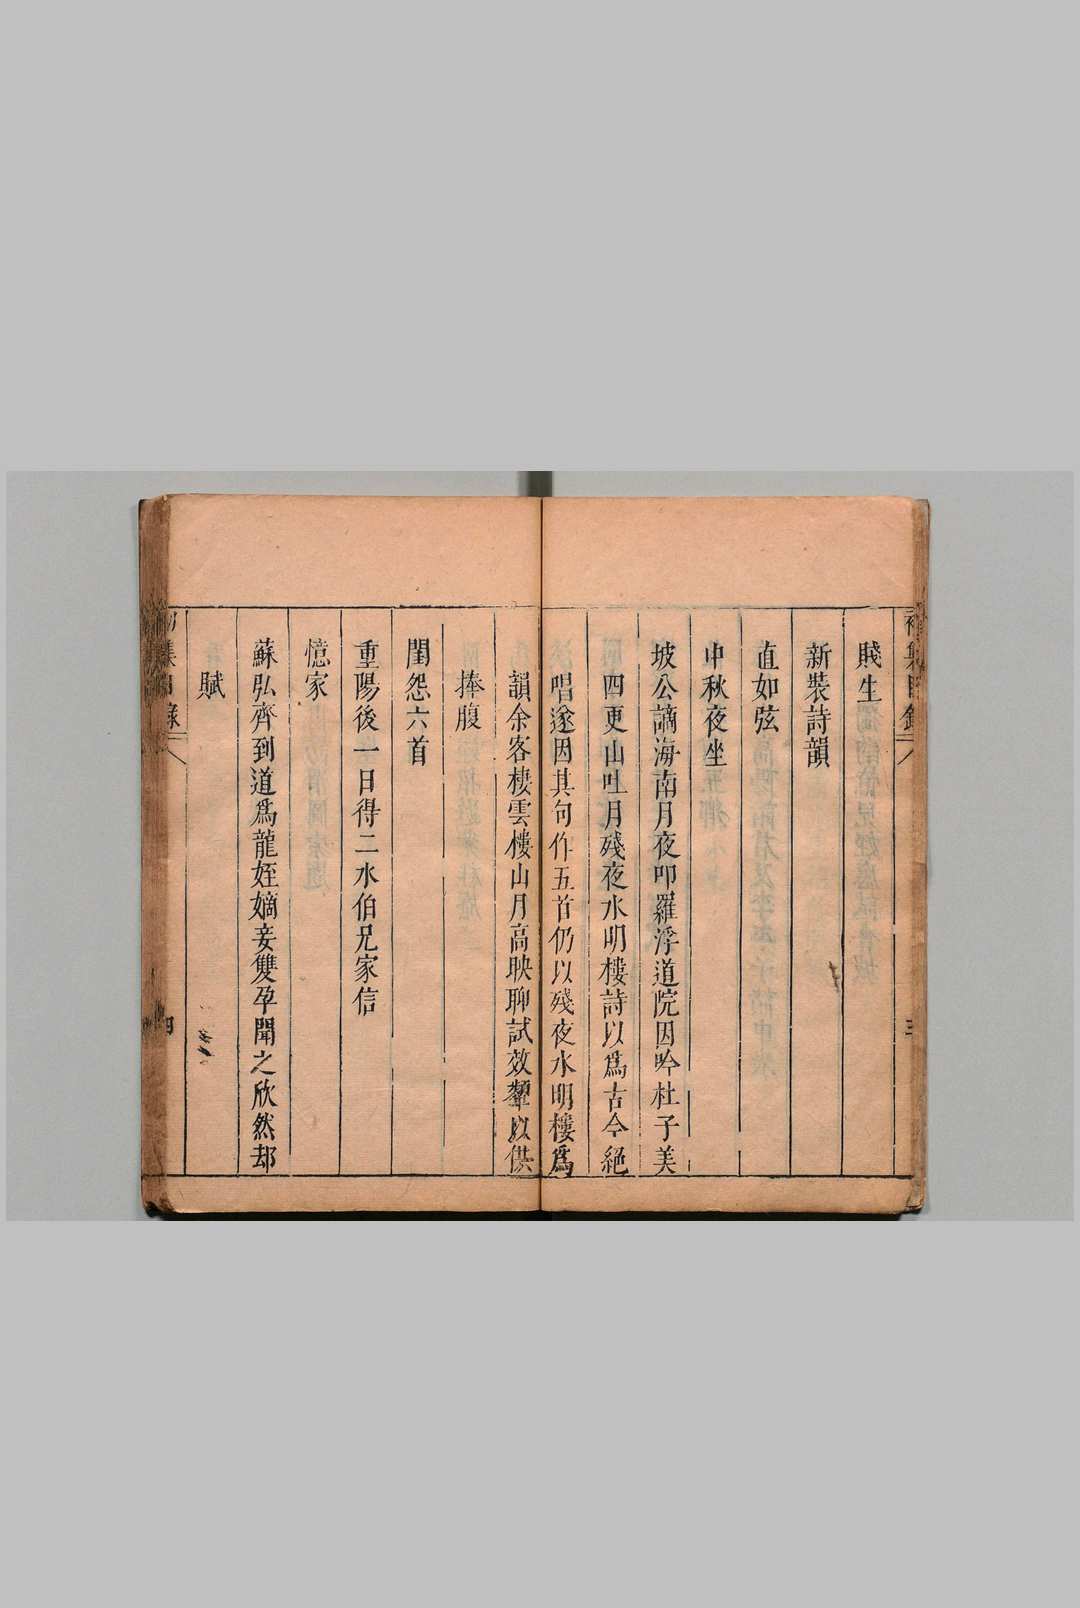 賤生
新裝詩韻
直如弦
中秋夜坐
坡公謫海南月夜叩羅浮道院因吟杜子美
四更山吐月殘夜水明樓詩以爲古今絕
唱遂因其句作五首仍以殘夜水明樓爲
韻余客棲雲樓山月高映聊試效顰以供
捧腹
閨怨六首
重陽後一日得二水伯兄家信
憶家
蘇弘齊到道爲龍姪嫡妾雙孕聞之欣然却
賦
集目錄
四